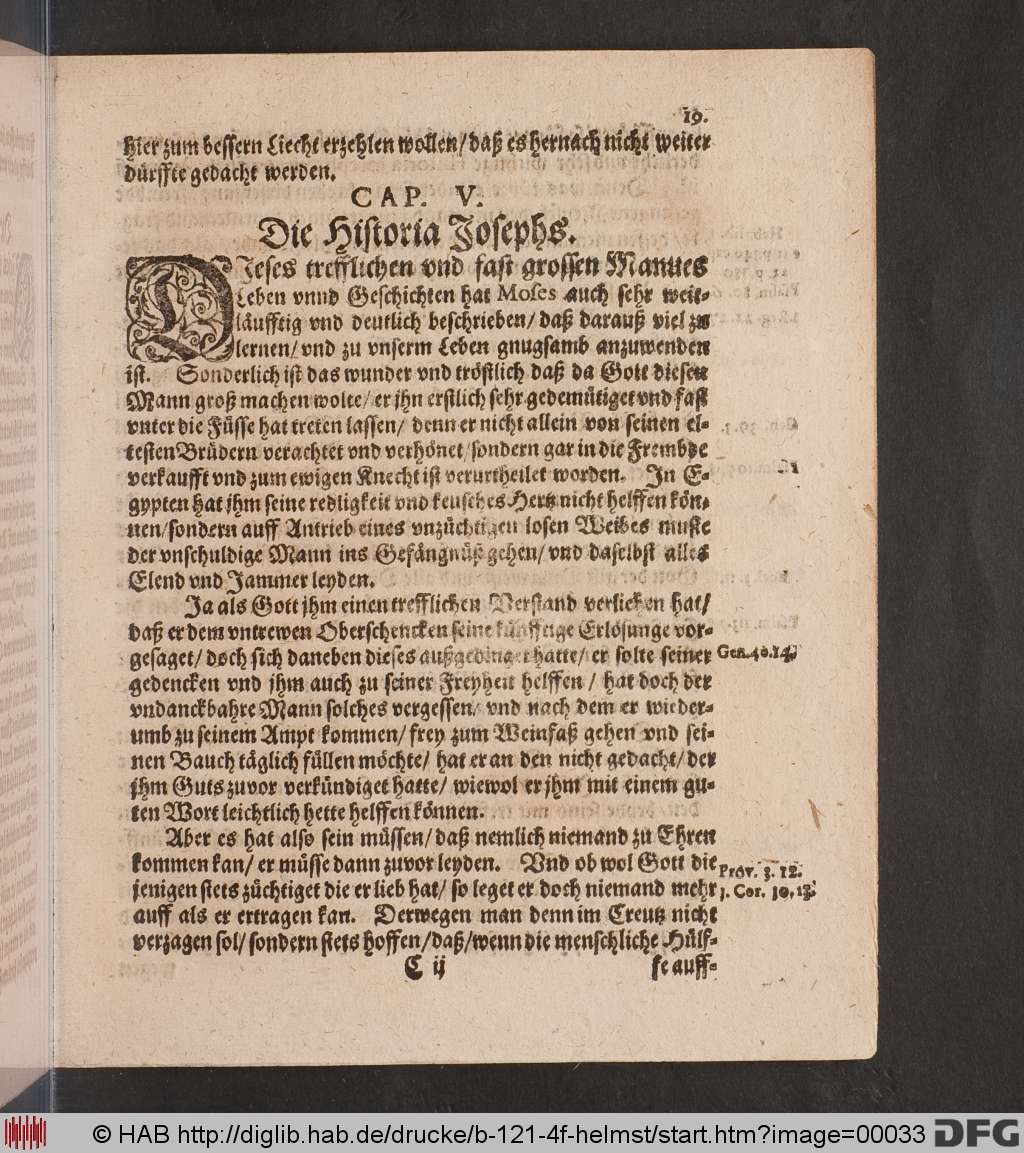 19.
hier zum bessern Liecht erzehlen wollen/ daß es hernach nicht weiter
dürffte gedacht werden.
CAP. V.
Die Historia Josephs.
DJeses trefflichen vnd fast grossen Mannes
Leben vnnd Geschichten hat Moses auch sehr weit-
läufftig vnd deutlich beschrieben/ daß darauß viel zu
lernen/ vnd zu vnserm Leben gnugsamb anzuwenden
ist. Sonderlich ist das wunder vnd tröstlich daß da Gott diesen
Mann groß machen wolte/ er jhn erstlich sehr gedemütiget vnd fast
vnter die Füsse hat treten lassen/ denn er nicht allein von seinen el-
testen Brüdern verachtet vnd verhönet/ sondern gar in die Frembde
verkaufft vnd zum ewigen Knecht ist verurtheilet worden. In E-
gypten hat jhm seine redligkeit vnd keusches Hertz nicht helffen kön-
nen/ sondern auff Antrieb eines vnzüchtigen losen Weibes muste
der vnschuldige Mann ins Gefängnüß gehen/ vnd daselbst alles
Elend vnd Jammer leyden.
Ja als Gott jhm einen trefflichen Verstand verliehen hat/
daß er dem vntrewen Oberschencken seine künfftige Erlösunge vor-
gesaget/ doch sich daneben dieses außgedinget hatte/ er solte seiner
Gen. 40. 14.
gedencken vnd jhm auch zu seiner Freyheit helffen / hat doch der
vndanckbahre Mann solches vergessen/ vnd nach dem er wieder-
umb zu seinem Ampt kommen/ frey zum Weinfaß gehen vnd sei-
nen Bauch täglich füllen möchte/ hat er an den nicht gedacht/ der
jhm Guts zuvor verkündiget hatte/ wiewol er jhm mit einem gu-
ten Wort leichtlich hette helffen können.
Aber es hat also sein müssen/ daß nemlich niemand zu Ehren
kommen kan/ er müsse dann zuvor leyden. Vnd ob wol Gott die
Prov. 3. 12.
jenigen stets züchtiget die er lieb hat/ so leget er doch niemand mehr
1. Cor. 10. 13.
auff als er ertragen kan. Derwegen man denn im Creutz nicht
verzagen sol/ sondern stets hoffen/ daß/ wenn die menschliche Hülf-
C ij
fe auff-
© HAB http://diglib.hab.de/drucke/b-121-4f-helmst/start.htm?image=00033
DFG